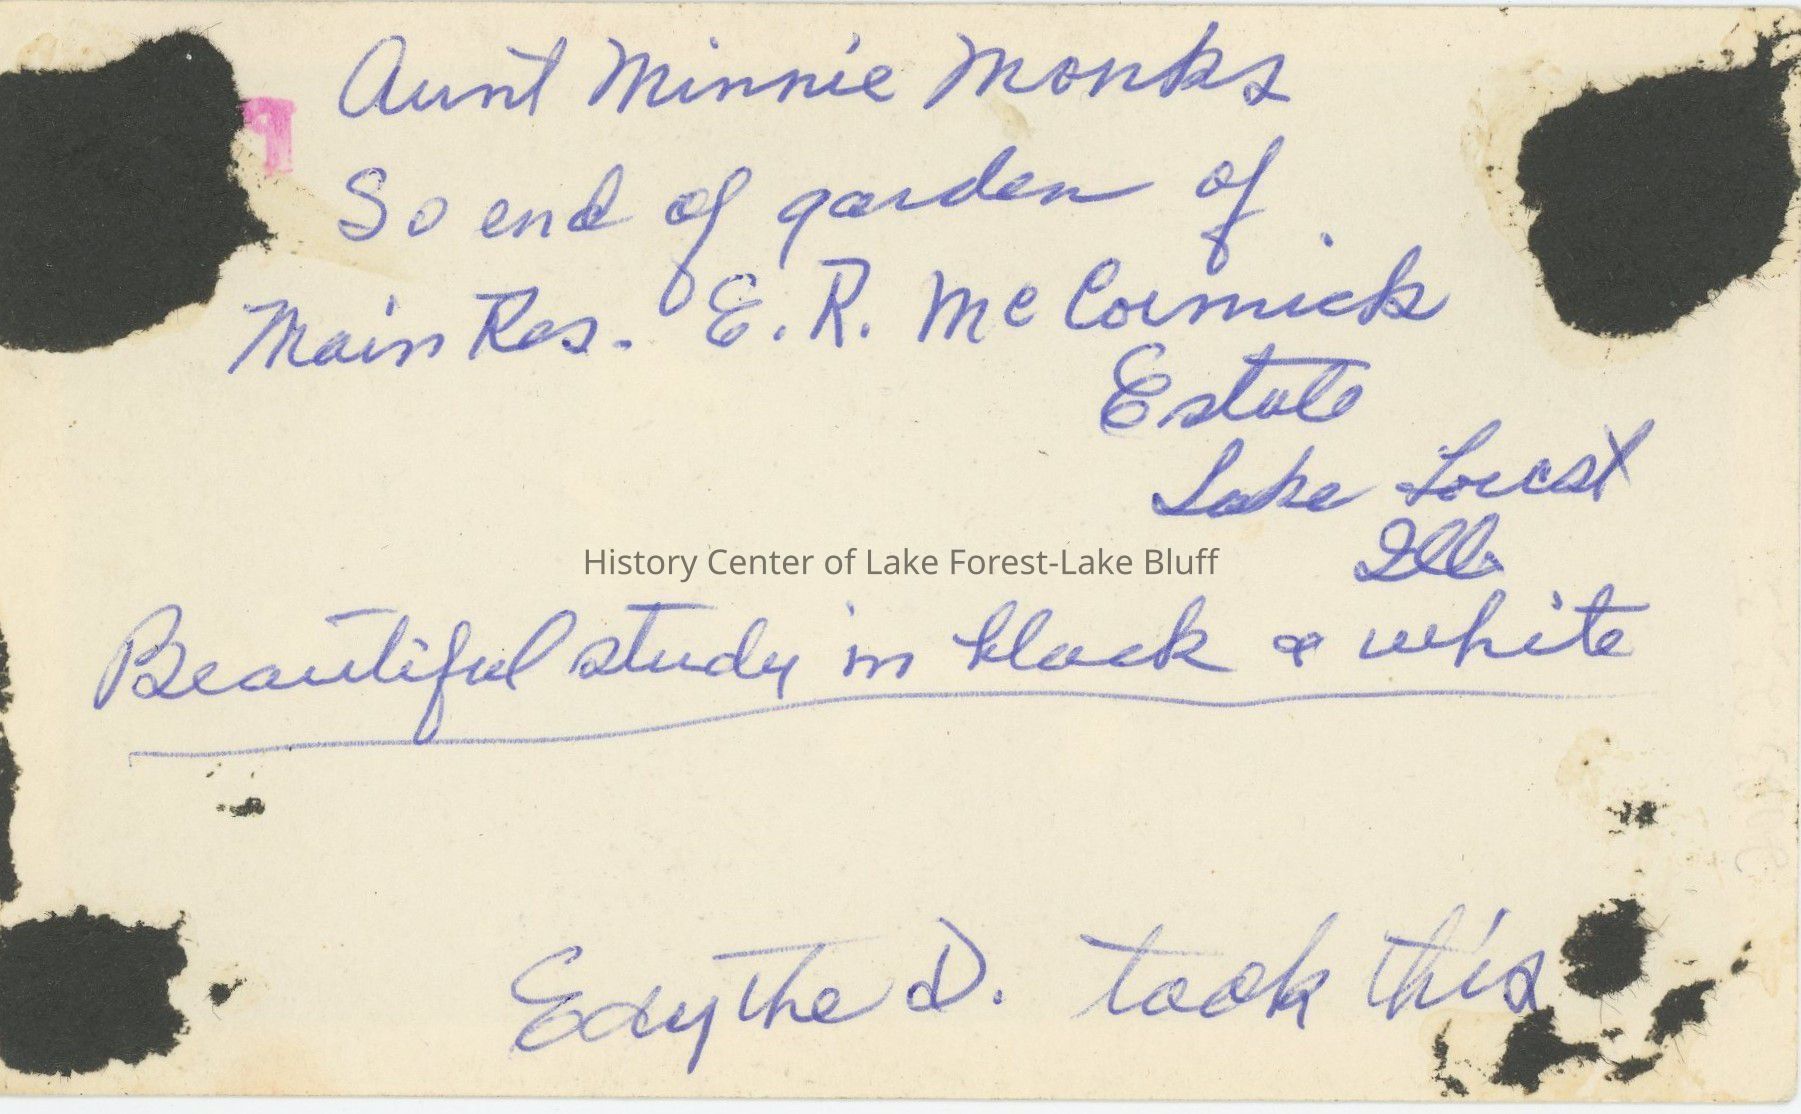 Aunt Minnie Monks
So end of garden of
Main Res. E. R. McCormick
Estate
Lake Forest
Ill.
History Center of Lake Forest-Lake Bluff
Beautiful study in black & white
Edythe D. took this